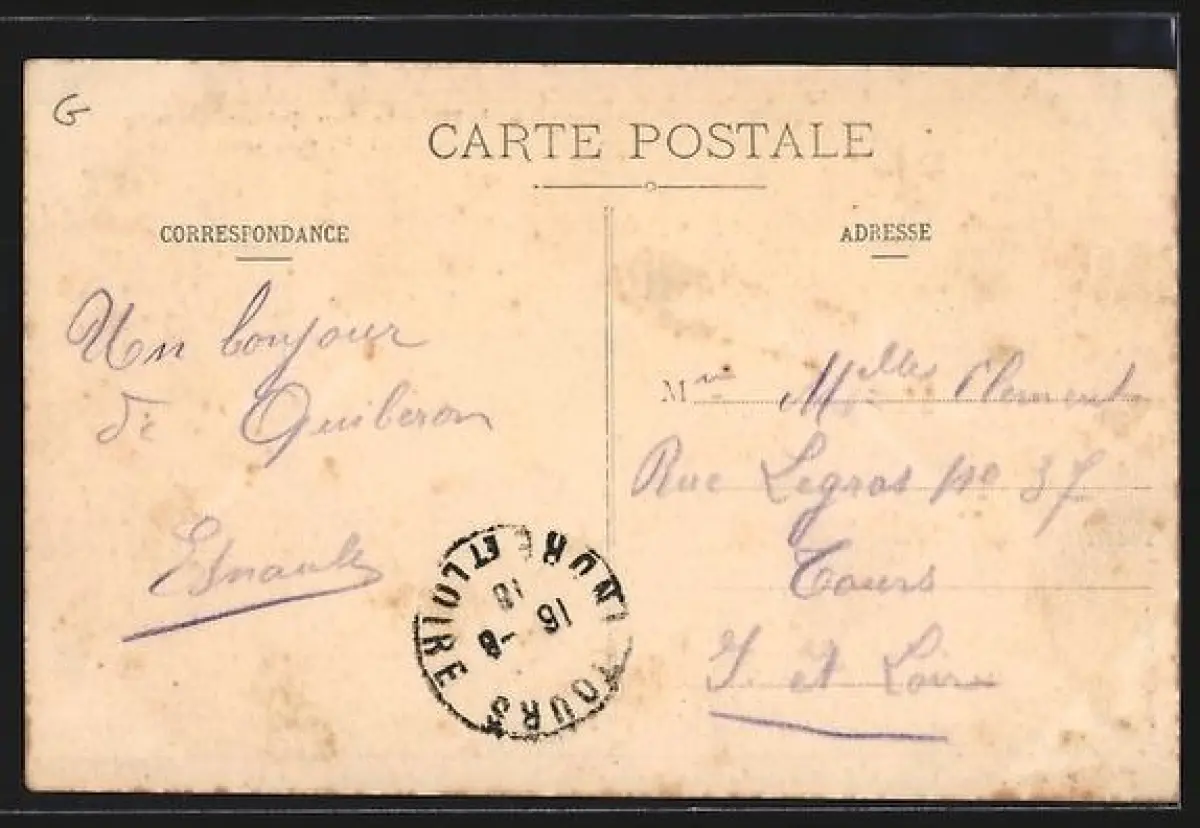 G
CARTE POSTALE
CORRESPONDANCE
Un bonjour
de Quiberon
Esnault
ADRESSE
M Melles Clement
Rue Legras no 37
Tours
I. et Loire
TOURS
INDRE ET LOIRE
15 -8
18